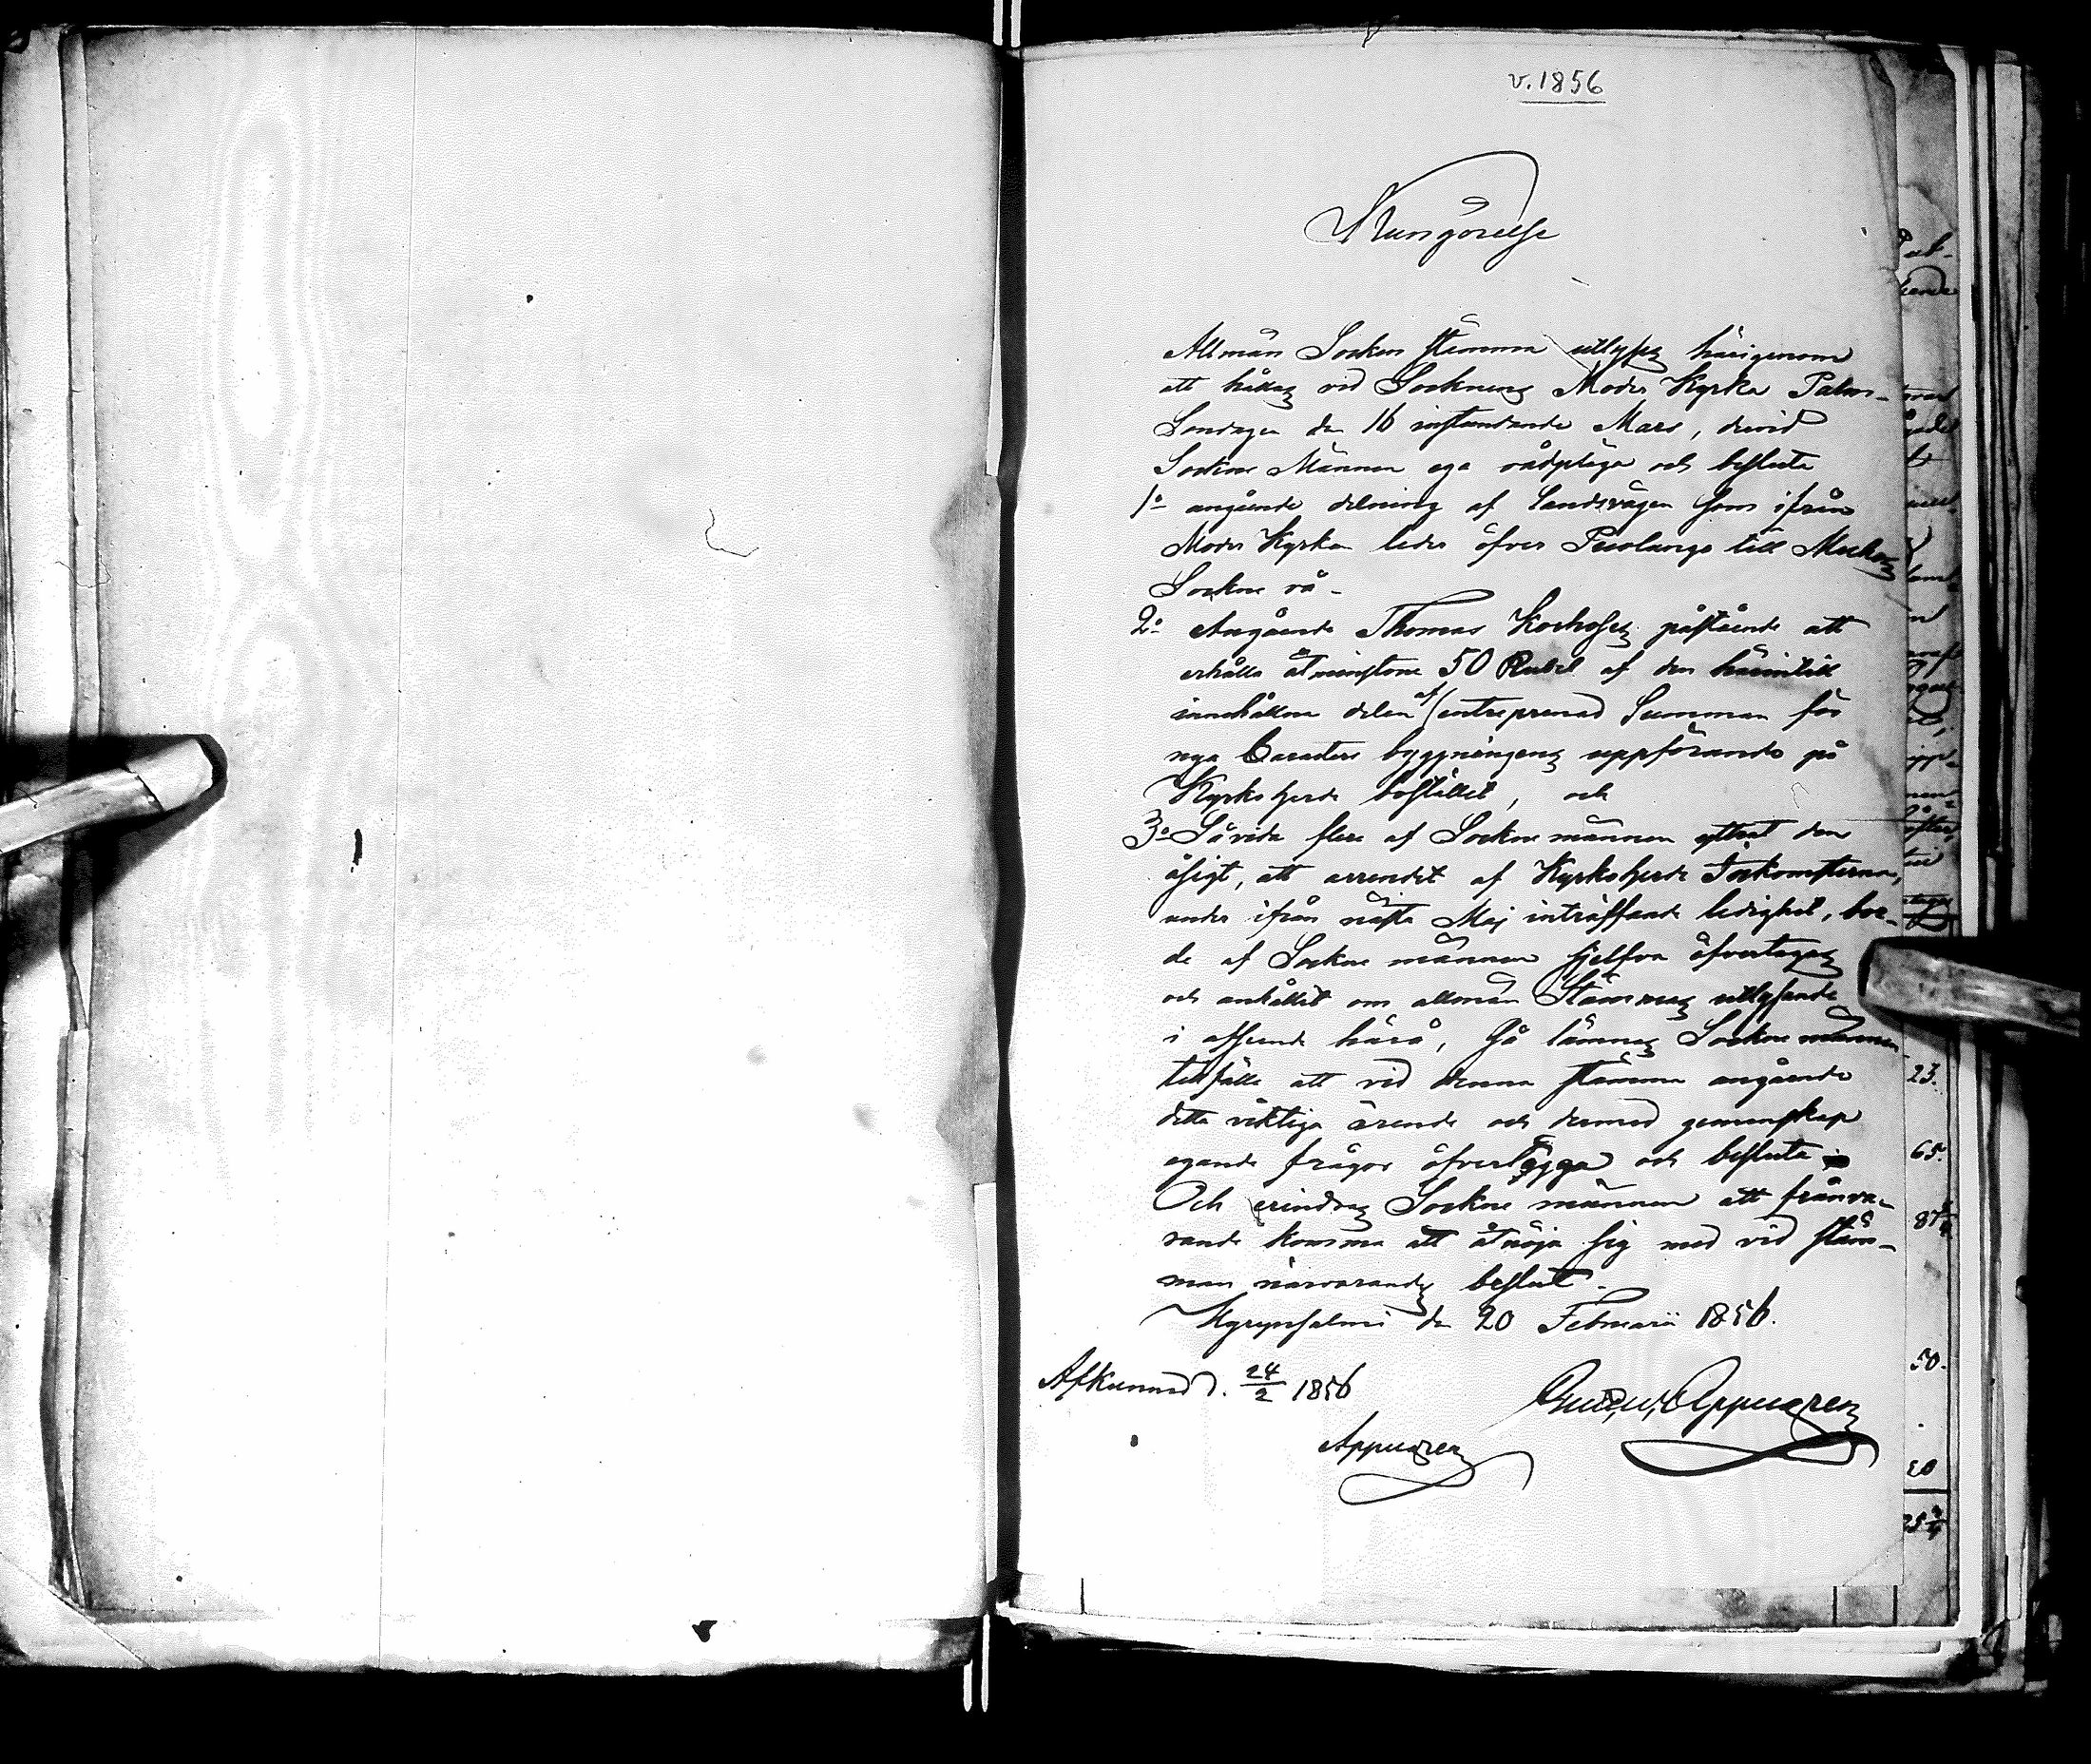 v. 1856
Kungörelse
Allmän Socken stämma utlyses härigenom
att hållas vid Socknens Moder Kyrka Palm-
Söndagen den 16 instundande Mars, dervid
Sockne Männen ega rådpläga och besluta
1o angående delning af Landsvägen som ifrån
Moder Kyrkan leder öfver Puolango till Muhos
Sockne rå -
2o Angående Thomas Korhosens påstående att
erhålla åtminstone 50 Rubel af den härintill
innehållna delen af entreprenad Summan för
nya Caracters byggningens uppförande på
Kyrkoherde bostället, och
3o Såvida flere af Socknemännen yttrat den
åsigt, att arrendet af Kyrkoherde Inkomsterna,
under ifrån nästa Maj inträffande ledighet, bor-
de af Sockne männen sjelfva öfvertagas
och anhållit om allmän Stämmas utlysande
i afseende härå, Så lämnas Sockne männen
tillfälle att vid denna stämma angående
detta viktiga ärende och dermed gemenskap
egande frågor öfverlägga och besluta
Och erindras Sockne männen att frånva-
rande komma att åtnöja sig med vid stäm-
man närvarandes beslut.
Hyrynsalmi den 20 Februarii 1856.
Afkunnad d. 24/2 1856
Appelgren
Appelgren
23.
65.
87
50.
20
25